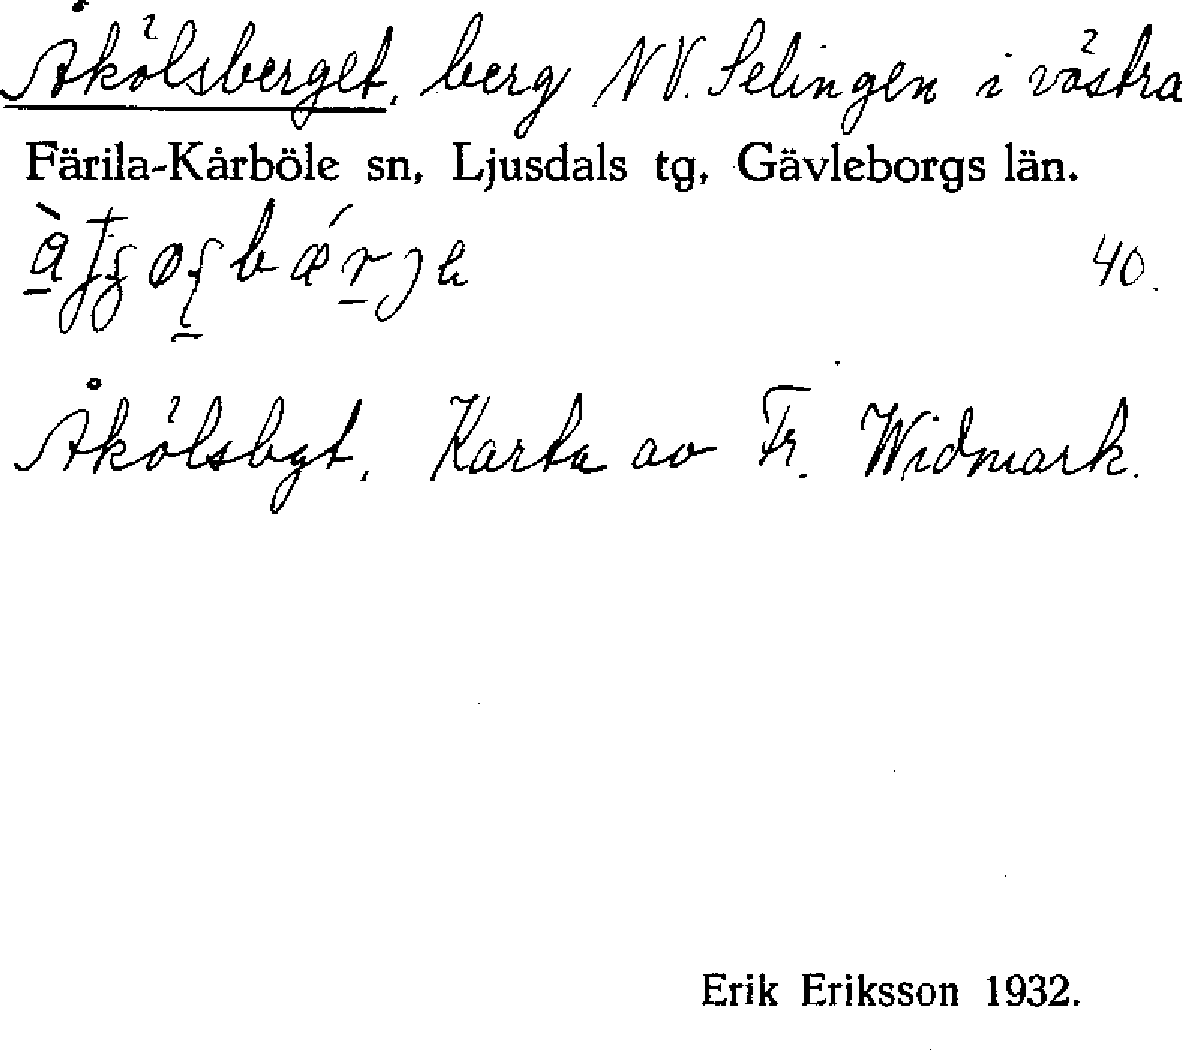 Åkölsberget, berg NV. Selingen i västra
Färila-Kårböle sn, Ljusdals tg, Gävleborgs län.
40.
Åkölsbgt. Karta av Fr. Widmark.
Erik Eriksson 1932.